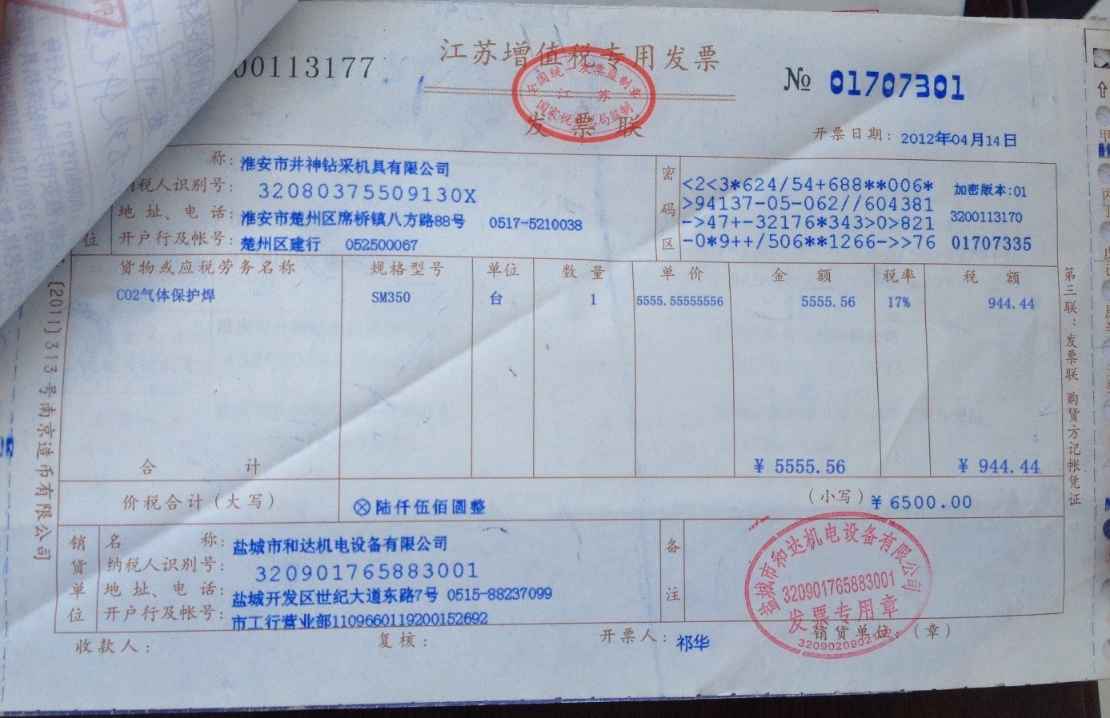 00113177
江苏增值税专用发票
发票联
全国统一发票监制章
江苏
国家税务局监制
№ 01707301
开票日期：2012年04月14日
称：淮安市井神钻采机具有限公司
纳税人识别号：32080375509130X
地址、电话：淮安市楚州区席桥镇八方路88号 0517-5210038
位 开户行及帐号：楚州区建行 052500067
密码区
<2<3*624/54+688**006* 加密版本:01
>94137-05-062//604381 3200113170
->47+-32176*343>0>821
-0*9++/506**1266->>76 01707335
货物或应税劳务名称 规格型号 单位 数量 单价 金额 税率 税额
CO2气体保护焊 SM350 台 1 5555.55555556 5555.56 17% 944.44
合计 ¥ 5555.56 ¥ 944.44
价税合计（大写） ⊗陆仟伍佰圆整 （小写）¥ 6500.00
销货单位
名称：盐城市和达机电设备有限公司
纳税人识别号：320901765883001
地址、电话：盐城开发区世纪大道东路7号 0515-88237099
开户行及帐号：市工行营业部1109660119200152692
备注
盐城市和达机电设备有限公司
320901765883001
发票专用章
收款人： 复核： 开票人：祁华 销货单位：（章）
第三联：发票联 购货方记帐凭证
[2011]313号南京造币有限公司